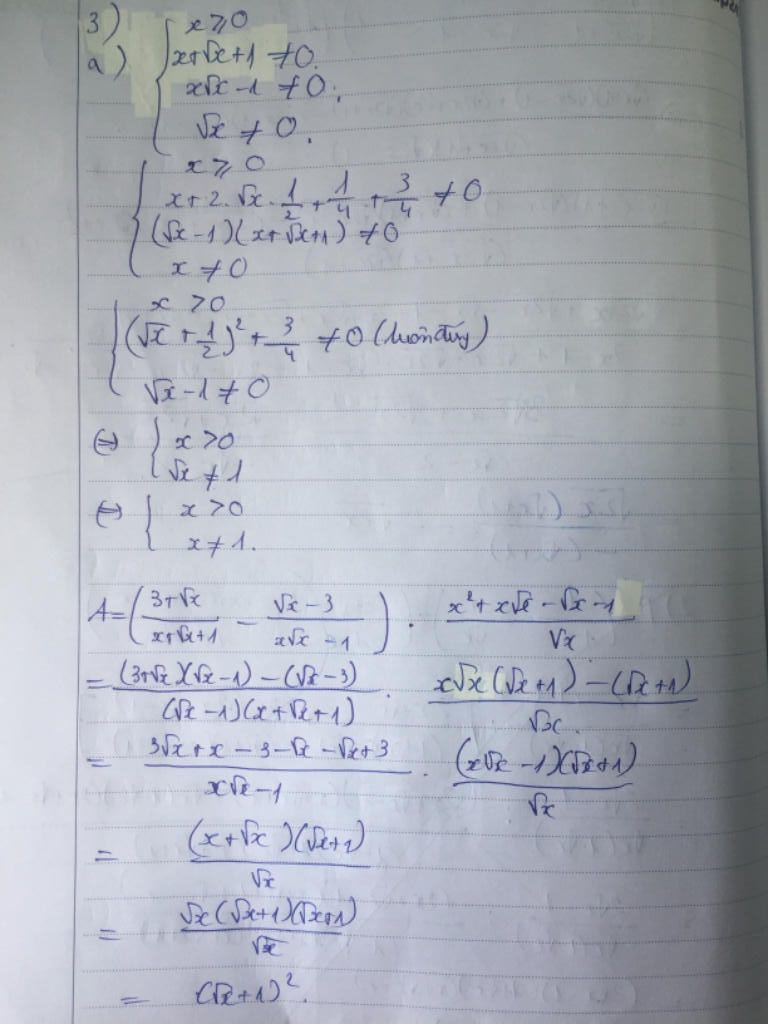 3)
a)
x ⩾ 0
x+√x+1 ≠ 0.
x√x - 1 ≠ 0.
√x ≠ 0.
x ⩾ 0
x + 2.√x.1/2 + 1/4 + 3/4 ≠ 0
(√x-1)(x+√x+1) ≠ 0
x ≠ 0
x > 0
(√x + 1/2)² + 3/4 ≠ 0 (luôn đúng)
√x - 1 ≠ 0
⇔ { x > 0
√x ≠ 1
⇔ { x > 0
x ≠ 1.
A = ( (3+√x)/(x+√x+1) - (√x-3)/(x√x-1) ) . (x²+x√x-√x-1)/√x
= ((3+√x)(√x-1)-(√x-3))/((√x-1)(x+√x+1)) . (x√x(√x+1)-(√x+1))/√x.
= (3√x+x-3-√x-√x+3)/(x√x-1) . ((x√x-1)(√x+1))/√x
= ((x+√x)(√x+1))/√x
= (√x(√x+1)(√x+1))/√x
= (√x+1)².